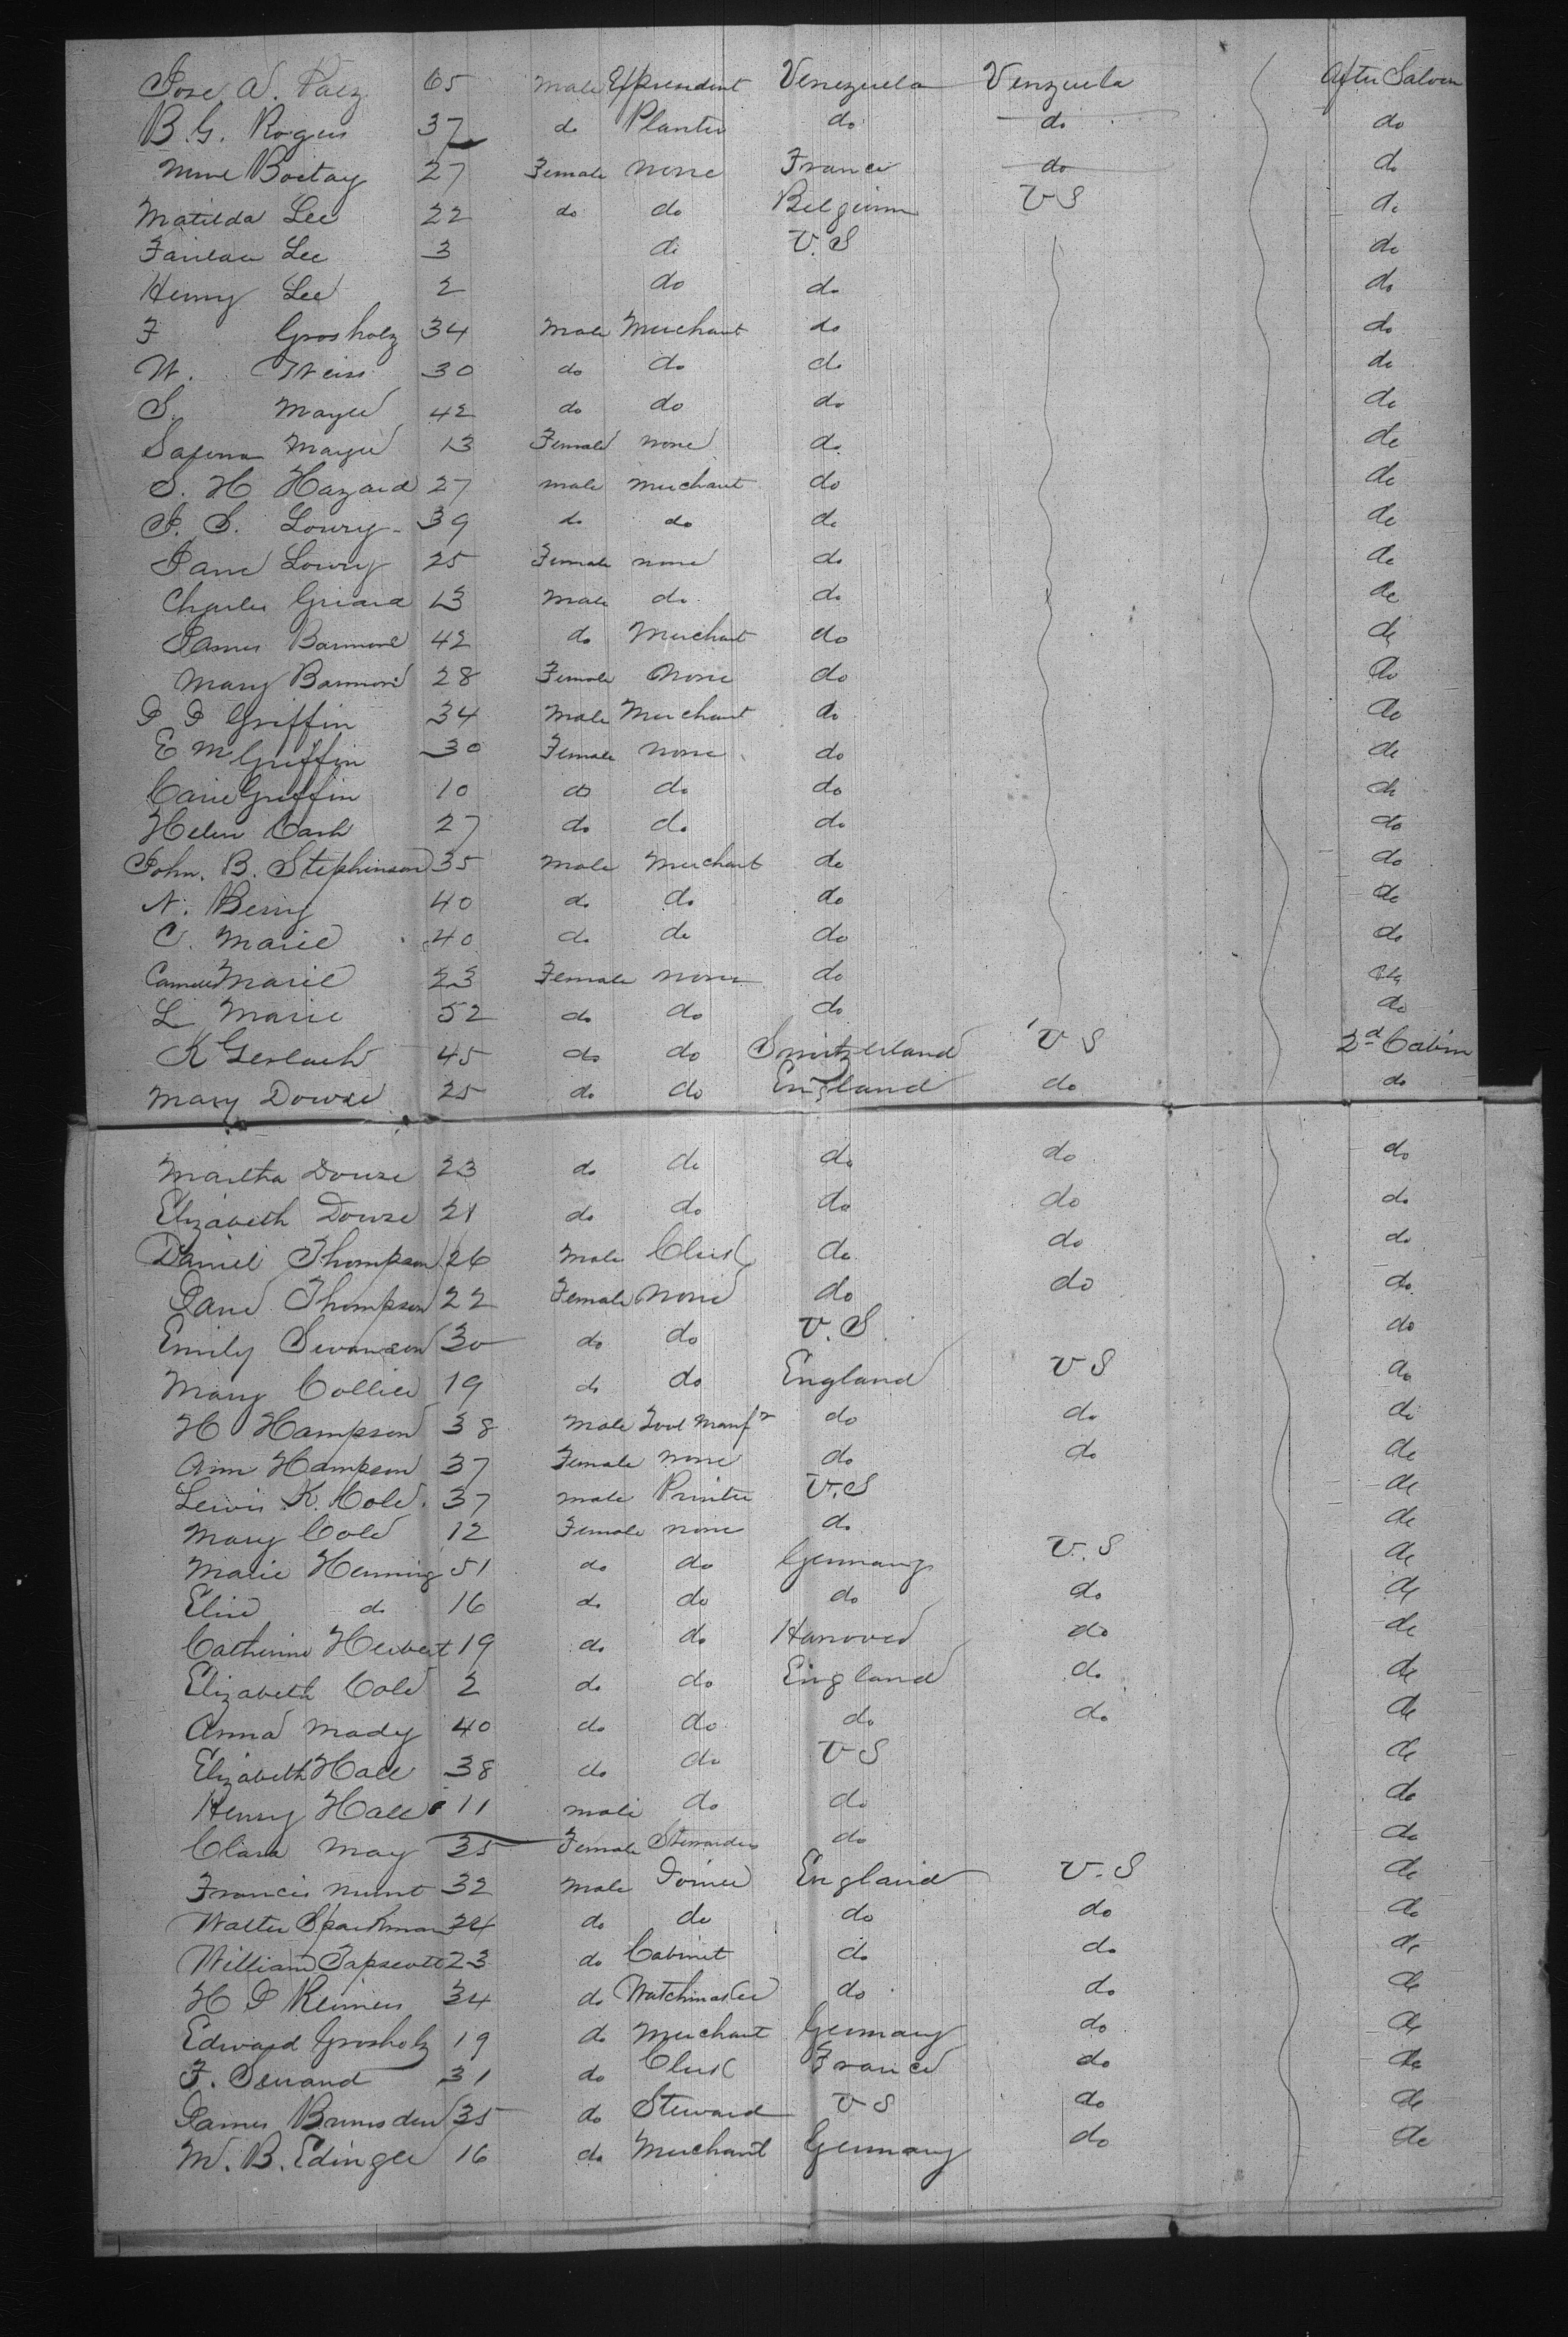 Jose A. Paez 65 male Expresident Venezuela Venzuela After Saloon
B. G. Rogers 37 do Planter do do do
Mme Boetay 27 Female none France do do
Matilda Lee 22 do do Belgium U S do
Lee 3 do U. S do
Henry Lee 2 do do do
F Grosholz 34 Male Merchant do do
W. Weiss 30 do do do do
S. Mayer 42 do do do do
Mayer 13 Female none do do
S. H Hazard 27 male merchant do do
J. S. Lowry 39 do do do do
Jane Lowry 25 Female none do do
Charles Girard 13 Male do do do
James Barmore 42 do Merchant do do
Mary Barmore 28 Female None do do
J J Griffin 34 Male Merchant do do
E M Griffin 30 Female none do do
Carie Griffin 10 do do do do
Helen Cash 27 do do do do
John. B. Stephenson 35 Male Merchant do do
N. Berry 40 do do do do
C. Marie 40 do do do do
Marie 23 Female none do do
L Marie 52 do do do do
K Gerlach 45 do do Switzerland U S 2d Cabin
Mary Dowse 25 do do England do do
Martha Dowse 23 do do do do do
Elizabeth Dowse 21 do do do do do
Daniel Thompson 26 Male Clerk do do do
Jane Thompson 22 Female None do do do
Emily Swanson 30 do do U. S do
Mary Collier 19 do do England U S do
H Hampson 38 Male Tool Manfr do do do
Ann Hampson 37 Female none do do do
Lewis K. Cole. 37 male Printer U. S do
Mary Cole 12 Female none do do
Marie Henning 51 do do Germany U. S do
Elise do 16 do do do do do
Catherine Herbert 19 do do Hanover do do
Elizabeth Cole 2 do do England do do
Anna Mady 40 do do do do do
Elizabeth Hall 38 do do U S do
Henry Hall 11 male do do do
Clara May 35 Female Stewardess do do
Francis Munt 32 Male Joiner England U. S do
Walter Sparkman 24 do do do do do
William Tapscott 23 do Cabinet do do do
H J Reimers 34 do Watchmaker do do do
Edward Grosholz 19 do Merchant Germany do do
F. Serrand 31 do Clerk France do do
James Brunsden 35 do Steward U S do do
M. B. Edinger 16 do Merchant Germany do do